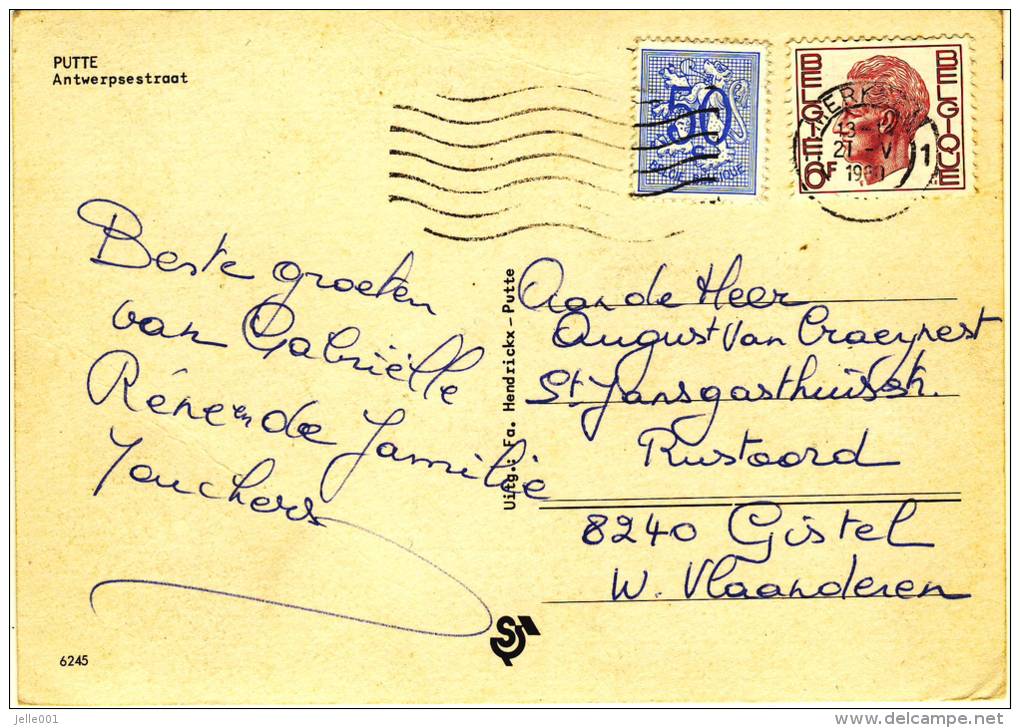 PUTTE
Antwerpsestraat
50
BELGIE BELGIQUE
BELGIE
BELGIQUE
6F
13-
21-V
1980
1
Beste groeten
van Gabriëlle
Réne en de familie
Uitg.: Fa. Hendrickx - Putte
Aan de Heer
August Van Craeynest
St Jansgasthuisstr.
Rustoord
8240 Gistel
W. Vlaanderen
6245
jelle001
delcampe.net